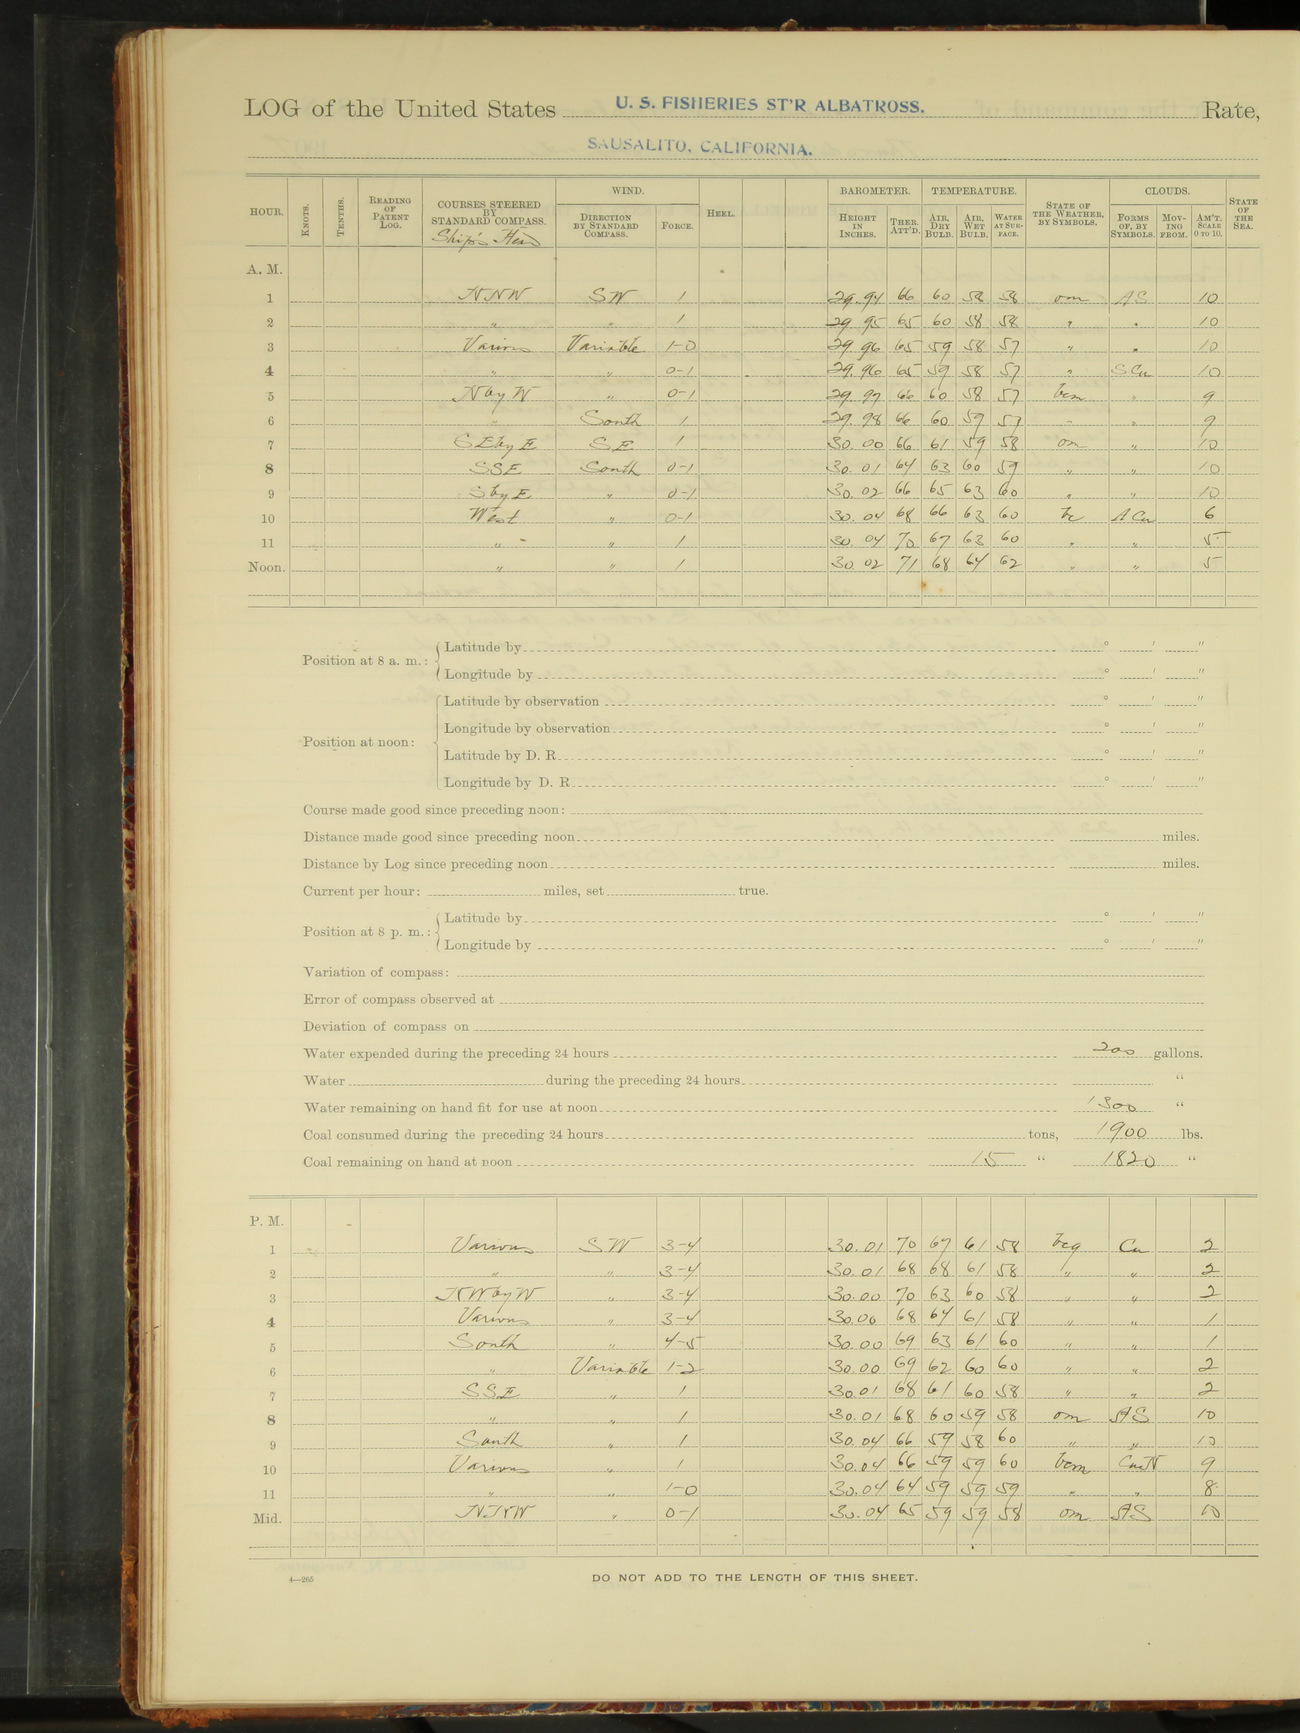 LOG of the United States U. S. FISHERIES ST'R ALBATROSS. Rate,
SAUSALITO, CALIFORNIA.
HOUR. KNOTS. TENTHS. READING OF PATENT LOG. COURSES STEERED BY STANDARD COMPASS. Ship's Head WIND. DIRECTION BY STANDARD COMPASS. FORCE. HEEL. BAROMETER. HEIGHT IN INCHES. THER. ATT'D. TEMPERATURE. AIR, DRY BULB. AIR, WET BULB. WATER AT SURFACE. STATE OF THE WEATHER, BY SYMBOLS. CLOUDS. FORMS OF, BY SYMBOLS. MOVING FROM. AM'T. SCALE 0 TO 10. STATE OF THE SEA.
A. M.
1 NNW SW 1 29.94 66 60 58 58 om AS 10
2 " " 1 29.95 65 60 58 58 " " 10
3 Various Variable 1-0 29.96 65 59 58 57 " " 10
4 " " 0-1 29.96 65 59 58 57 " SCu 10
5 N by W " 0-1 29.97 66 60 58 57 bcm " 9
6 " South 1 29.98 66 60 59 57 " " 9
7 SE by E SE 1 30.00 66 61 59 58 om " 10
8 SSE South 0-1 30.01 64 63 60 59 " " 10
9 S by E " 0-1 30.02 66 65 63 60 " " 10
10 West " 0-1 30.04 68 66 63 60 bc ACu 6
11 " " 1 30.04 70 67 63 60 " " 5
Noon. " " 1 30.02 71 68 64 62 " " 5
Position at 8 a. m.: Latitude by ° ' "
Longitude by ° ' "
Position at noon: Latitude by observation ° ' "
Longitude by observation ° ' "
Latitude by D. R. ° ' "
Longitude by D. R. ° ' "
Course made good since preceding noon:
Distance made good since preceding noon miles.
Distance by Log since preceding noon miles.
Current per hour: miles, set true.
Position at 8 p. m.: Latitude by ° ' "
Longitude by ° ' "
Variation of compass:
Error of compass observed at
Deviation of compass on
Water expended during the preceding 24 hours 200 gallons.
Water during the preceding 24 hours "
Water remaining on hand fit for use at noon 1300 "
Coal consumed during the preceding 24 hours tons, 1900 lbs.
Coal remaining on hand at noon 15 " 1820 "
P. M.
1 Various SW 3-4 30.01 70 67 61 58 bcq Cu 2
2 " " 3-4 30.01 68 68 61 58 " " 2
3 NW by W " 3-4 30.00 70 63 60 58 " " 2
4 Various " 3-4 30.00 68 64 61 58 " " 1
5 South " 4-5 30.00 69 63 61 60 " " 1
6 " Variable 1-2 30.00 69 62 60 60 " " 2
7 SSE " 1 30.01 68 61 60 58 " " 2
8 " " 1 30.01 68 60 59 58 om AS 10
9 South " 1 30.04 66 59 58 60 " " 10
10 Various " 1 30.04 66 59 59 60 bcm 9
11 " " 1-0 30.04 64 59 59 59 " " 8
Mid. NNW " 0-1 30.04 65 59 59 58 om AS 10
4—265 DO NOT ADD TO THE LENGTH OF THIS SHEET.